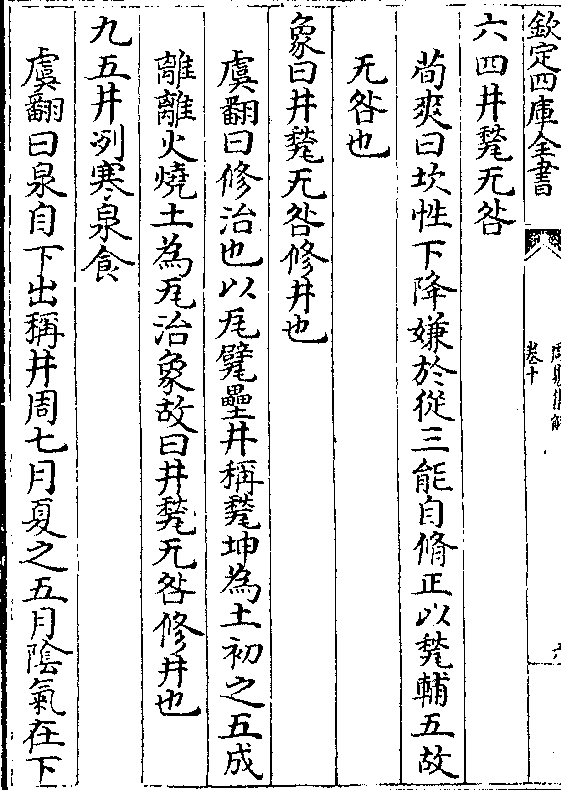 欽定四庫全書
卷十
六四井甃无咎
荀爽曰坎性下降嫌於從三能自脩正以甃輔五故
无咎也
象曰井甃无咎修井也
虞翻曰修治也以瓦甓壘井稱甃坤為土初之五成
離離火燒土為瓦治象故曰井甃无咎修井也
九五井冽寒泉食
虞翻曰泉自下出稱井周七月夏之五月陰氣在下